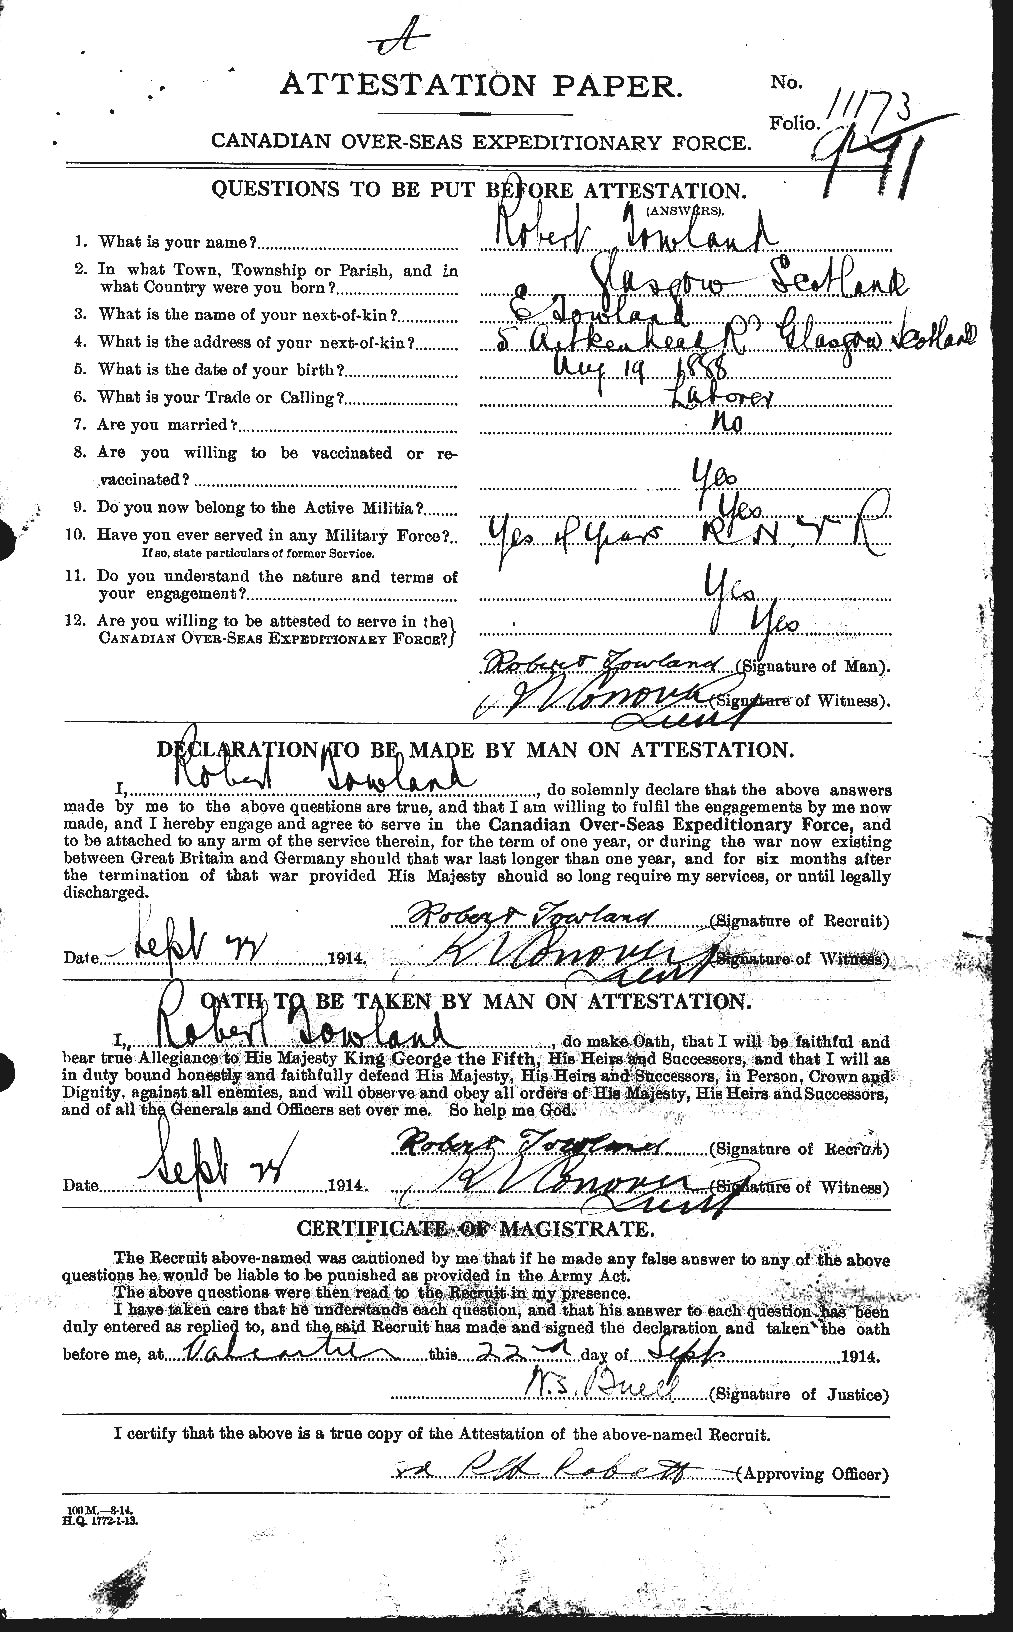 A
ATTESTATION PAPER.
No. 11173
Folio.
CANADIAN OVER-SEAS EXPEDITIONARY FORCE.
QUESTIONS TO BE PUT BEFORE ATTESTATION.
(ANSWERS).
1. What is your name? Robert Towland
2. In what Town, Township or Parish, and in
what Country were you born? Glasgow Scotland
3. What is the name of your next-of-kin? E Towland
4. What is the address of your next-of-kin? 5 Aitkenhead Rd Glasgow Scotland
5. What is the date of your birth? Aug 19 1888
6. What is your Trade or Calling? Laborer
7. Are you married? No
8. Are you willing to be vaccinated or re-
vaccinated? Yes
9. Do you now belong to the Active Militia? Yes
10. Have you ever served in any Military Force? Yes 4 years R N V R
If so, state particulars of former Service.
11. Do you understand the nature and terms of
your engagement? Yes
12. Are you willing to be attested to serve in the
CANADIAN OVER-SEAS EXPEDITIONARY FORCE? Yes
Robert Towland (Signature of Man).
Conover (Signature of Witness).
Lieut
DECLARATION TO BE MADE BY MAN ON ATTESTATION.
I, Robert Towland, do solemnly declare that the above answers
made by me to the above questions are true, and that I am willing to fulfil the engagements by me now
made, and I hereby engage and agree to serve in the Canadian Over-Seas Expeditionary Force, and
to be attached to any arm of the service therein, for the term of one year, or during the war now existing
between Great Britain and Germany should that war last longer than one year, and for six months after
the termination of that war provided His Majesty should so long require my services, or until legally
discharged.
Robert Towland (Signature of Recruit)
Date Sept 22 1914. K V Conover Lieut (Signature of Witness)
OATH TO BE TAKEN BY MAN ON ATTESTATION.
I, Robert Towland, do make Oath, that I will be faithful and
bear true Allegiance to His Majesty King George the Fifth, His Heirs and Successors, and that I will as
in duty bound honestly and faithfully defend His Majesty, His Heirs and Successors, in Person, Crown and
Dignity, against all enemies, and will observe and obey all orders of His Majesty, His Heirs and Successors,
and of all the Generals and Officers set over me. So help me God.
Robert Towland (Signature of Recruit)
Date Sept 22 1914. K V Conover Lieut (Signature of Witness)
CERTIFICATE OF MAGISTRATE.
The Recruit above-named was cautioned by me that if he made any false answer to any of the above
questions he would be liable to be punished as provided in the Army Act.
The above questions were then read to the Recruit in my presence.
I have taken care that he understands each question, and that his answer to each question has been
duly entered as replied to, and the said Recruit has made and signed the declaration and taken the oath
before me, at Valcartier this 22nd day of Sept 1914.
W.S. Buell (Signature of Justice)
I certify that the above is a true copy of the Attestation of the above-named Recruit.
(Approving Officer)
100 M.—8-14.
H.Q. 1772-1-13.